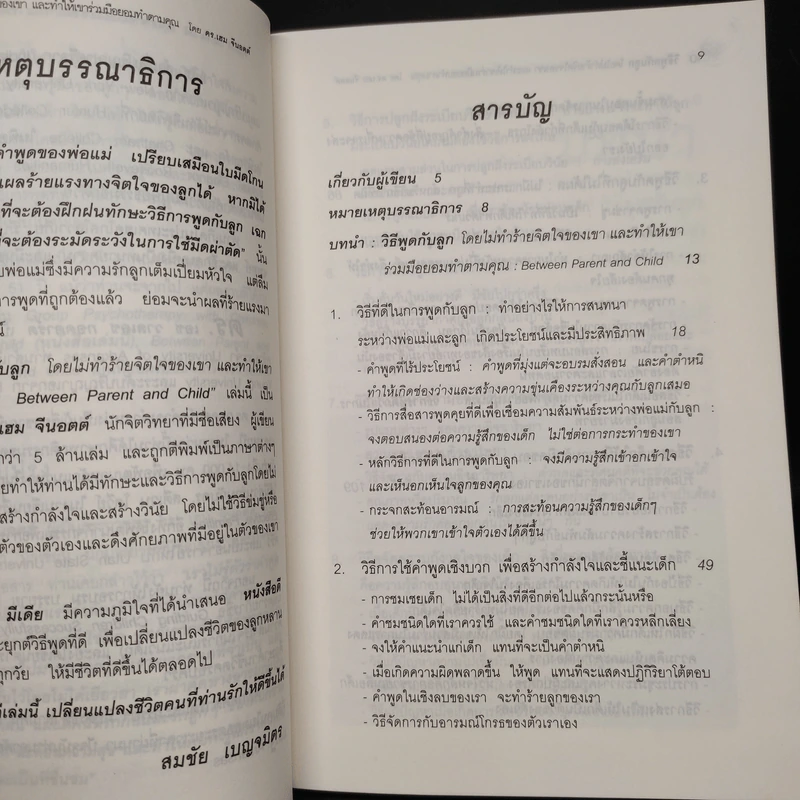 ของเขา และทำให้เขาร่วมมือยอมทำตามคุณ โดย ดร.เฮม จีนอตต์
เหตุบรรณาธิการ
คำพูดของพ่อแม่ เปรียบเสมือนใบมีดโกน
แผลร้ายแรงทางจิตใจของลูกได้ หากมิได้
ที่จะต้องฝึกฝนทักษะวิธีการพูดกับลูก เฉก
ที่จะต้องระมัดระวังในการใช้มีดผ่าตัด" นั้น
พ่อแม่ซึ่งมีความรักลูกเต็มเปี่ยมหัวใจ แต่ลืม
การพูดที่ถูกต้องแล้ว ย่อมจะนำผลที่ร้ายแรงมา
กับลูก โดยไม่ทำร้ายจิตใจของเขา และทำให้เขา
Between Parent and Child" เล่มนี้ เป็น
เฮม จีนอตต์ นักจิตวิทยาที่มีชื่อเสียง ผู้เขียน
กว่า 5 ล้านเล่ม และถูกตีพิมพ์เป็นภาษาต่างๆ
ทำให้ท่านได้มีทักษะและวิธีการพูดกับลูกโดยไม่
สร้างกำลังใจและสร้างวินัย โดยไม่ใช้วิธีข่มขู่หรือ
ตัวของตัวเองและดึงศักยภาพที่มีอยู่ในตัวของเขา
มีเดีย มีความภูมิใจที่ได้นำเสนอ หนังสือดี
ยุกต์วิธีพูดที่ดี เพื่อเปลี่ยนแปลงชีวิตของลูกหลาน
ทุกวัย ให้มีชีวิตที่ดีขึ้นได้ตลอดไป
เล่มนี้ เปลี่ยนแปลงชีวิตคนที่ท่านรักให้ดีขึ้นได้
สมชัย เบญจมิตร
9
สารบัญ
เกี่ยวกับผู้เขียน 5
หมายเหตุบรรณาธิการ 8
บทนำ : วิธีพูดกับลูก โดยไม่ทำร้ายจิตใจของเขา และทำให้เขา
ร่วมมือยอมทำตามคุณ : Between Parent and Child 13
1. วิธีที่ดีในการพูดกับลูก : ทำอย่างไรให้การสนทนา
ระหว่างพ่อแม่และลูก เกิดประโยชน์และมีประสิทธิภาพ 18
- คำพูดที่ไร้ประโยชน์ : คำพูดที่มุ่งแต่จะอบรมสั่งสอน และคำตำหนิ
ทำให้เกิดช่องว่างและสร้างความขุ่นเคืองระหว่างคุณกับลูกเสมอ
- วิธีการสื่อสารพูดคุยที่ดีเพื่อเชื่อมความสัมพันธ์ระหว่างพ่อแม่กับลูก :
จงตอบสนองต่อความรู้สึกของเด็ก ไม่ใช่ต่อการกระทำของเขา
- หลักวิธีการที่ดีในการพูดกับลูก : จงมีความรู้สึกเข้าอกเข้าใจ
และเห็นอกเห็นใจลูกของคุณ
- กระจกสะท้อนอารมณ์ : การสะท้อนความรู้สึกของเด็กๆ
ช่วยให้พวกเขาเข้าใจตัวเองได้ดีขึ้น
2. วิธีการใช้คำพูดเชิงบวก เพื่อสร้างกำลังใจและชี้แนะเด็ก 49
- การชมเชยเด็ก ไม่ได้เป็นสิ่งที่ดีอีกต่อไปแล้วกระนั้นหรือ
- คำชมชนิดใดที่เราควรใช้ และคำชมชนิดใดที่เราควรหลีกเลี่ยง
- จงให้คำแนะนำแก่เด็ก แทนที่จะเป็นคำตำหนิ
- เมื่อเกิดความผิดพลาดขึ้น ให้พูด แทนที่จะแสดงปฏิกิริยาโต้ตอบ
- คำพูดในเชิงลบของเรา จะทำร้ายลูกของเรา
- วิธีจัดการกับอารมณ์โกรธของตัวเราเอง